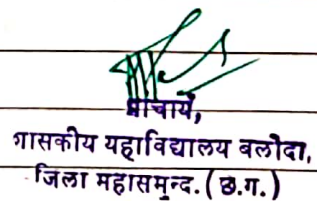 प्राचार्य,
शासकीय महाविद्यालय बलौदा,
जिला महासमुन्द. (छ.ग.)